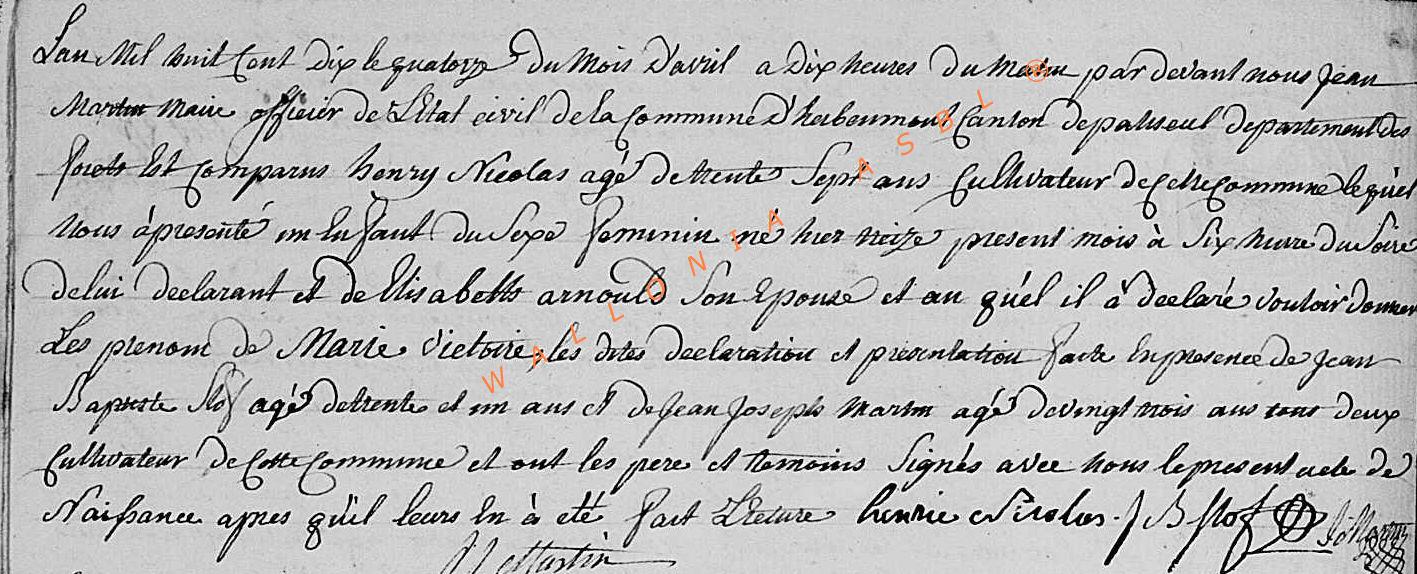 Lan Mil huit Cent Dix le quatorze du Mois D'avril a Dix heures du Matin par devant nous Jean
Martin Maire officier de L'Etat civil de la Commune D'herbeumont Canton de paliseul departement des
forets Est Comparus henry Nicolas agé de trente Sept ans Cultivateur de Cette Commune le quel
Nous à presenté un Enfant du Sexe feminin né hier treize present mois à Six heure du Soire
de lui declarant et de Elisabeth arnould Son Epouse et au quel il à declaré vouloir donner
Les prenom de Marie Victoire, les dites declaration et presentation faite En presence de Jean
Baptiste Slof agé de trente et un ans et de Jean Joseph Martin agé de vingt trois ans tous deux
Cultivateur de Cette Commune et ont les pere et temoins Signés avec Nous le present acte de
Naissance apres quil leurs En à eté fait Lecture henrie Nicolas J B Slof JJ Martin
J Martin
WALLONIA ASBL ®